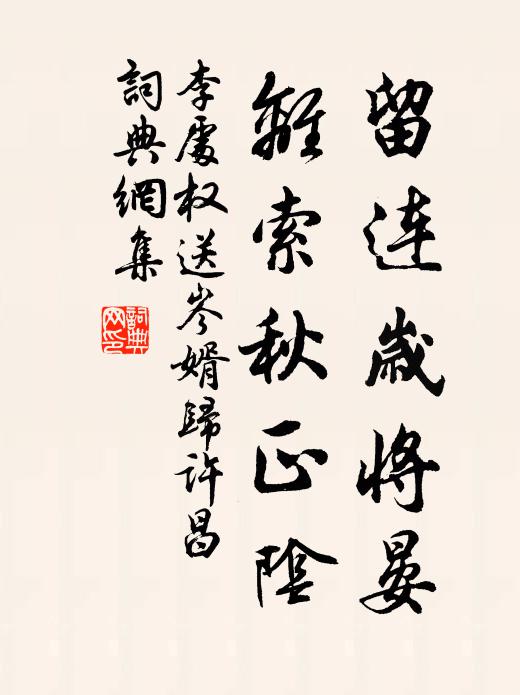 留連歲將晏
離索秋正陰
李處权送岑婿歸許昌
詞典網集
詞典网印